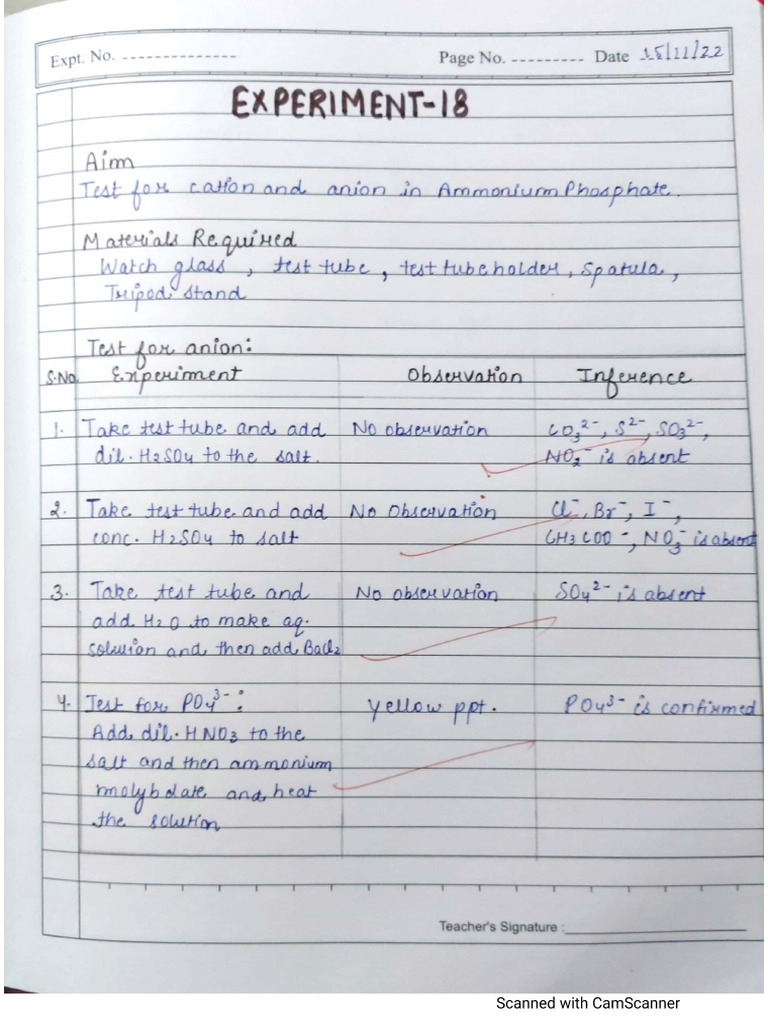 Expt. No. -------------- Page No. --------- Date 15/11/22
EXPERIMENT-18
Aim
Test for cation and anion in Ammonium Phosphate.
Materials Required
Watch glass, test tube, test tube holder, Spatula,
Tripod stand
Test for anion:
S.No. Experiment Observation Inference
1. Take test tube and add No observation CO₃²⁻, S²⁻, SO₃²⁻,
dil. H₂SO₄ to the salt. NO₂⁻ is absent
2. Take test tube and add No Observation Cl⁻, Br⁻, I⁻,
conc. H₂SO₄ to salt CH₃COO⁻, NO₃⁻ is absent
3. Take test tube and No observation SO₄²⁻ is absent
add H₂O to make aq.
solution and then add BaCl₂
4. Test for PO₄³⁻: Yellow ppt. PO₄³⁻ is confirmed
Add dil. HNO₃ to the
salt and then ammonium
molybdate and heat
the solution
Teacher's Signature :
Scanned with CamScanner